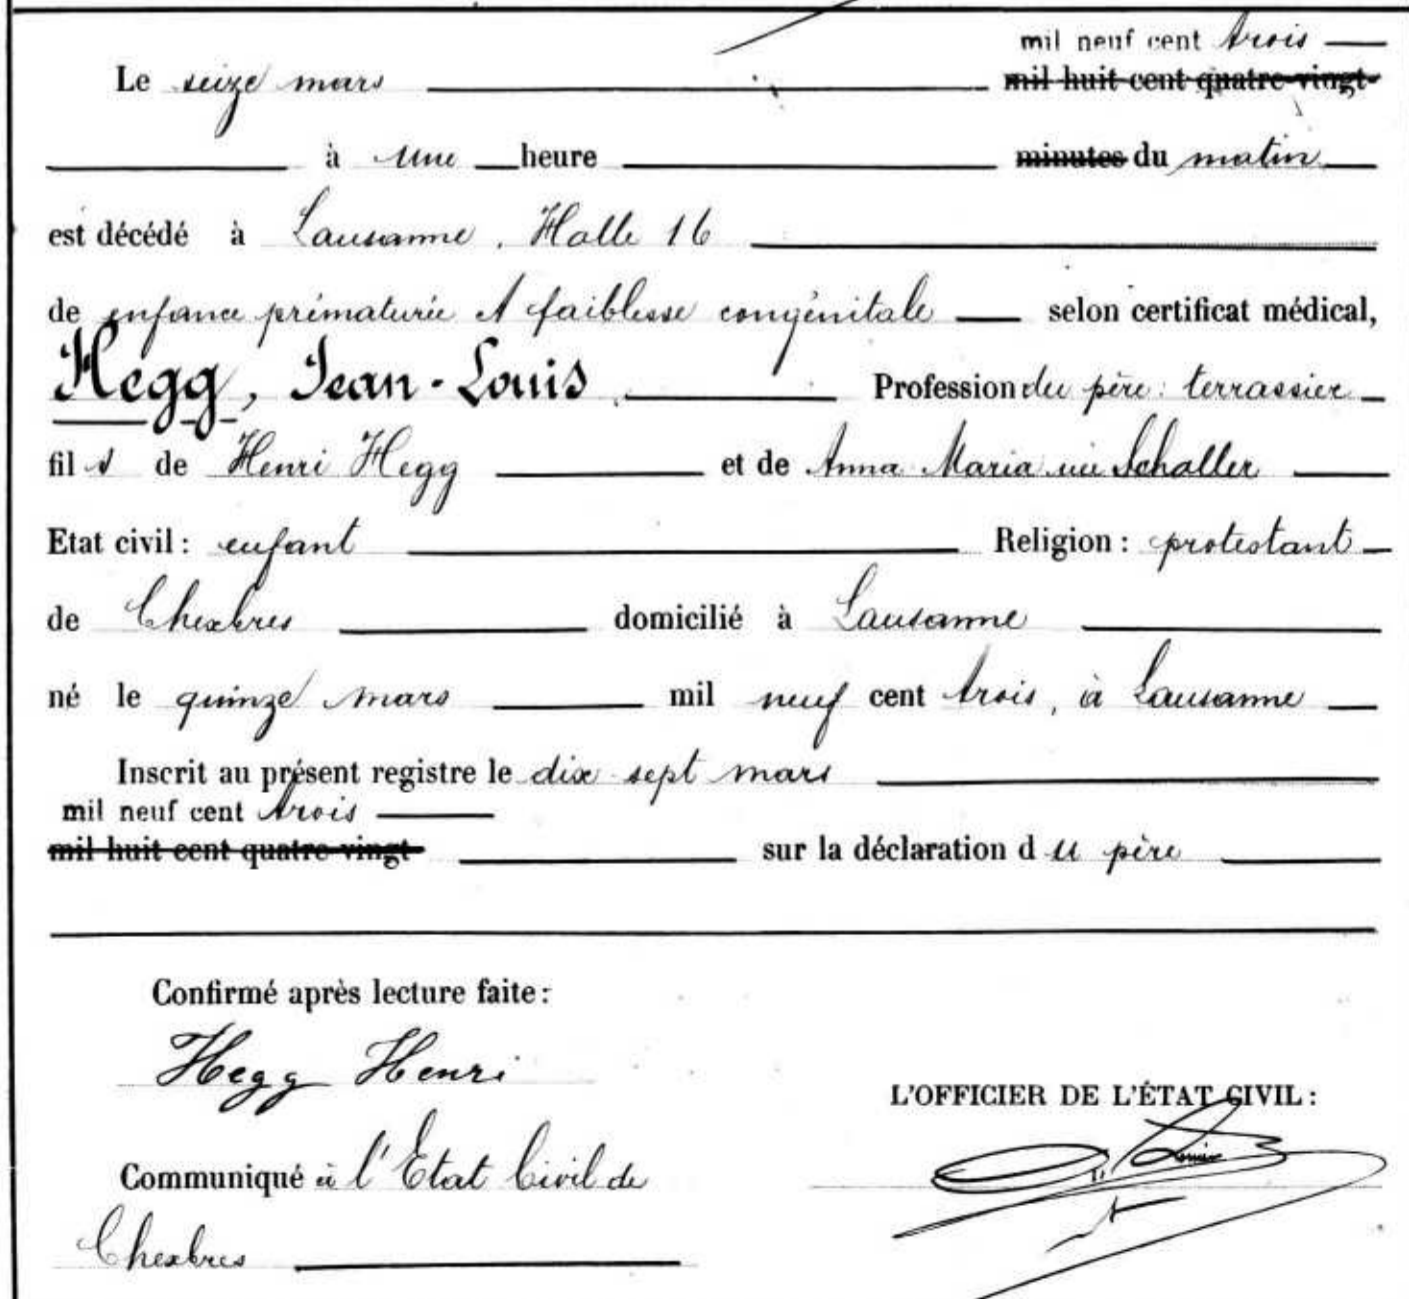 mil neuf cent trois
Le seize mars mil huit cent quatre-vingt-
à une heure minutes du matin
est décédé à Lausanne, Halle 16
de enfance prématurée et faiblesse congénitale selon certificat médical,
Hegg, Jean-Louis Profession du père: terrassier
fils de Henri Hegg et de Anna Maria née Schaller
Etat civil: enfant Religion: protestant
de Chexbres domicilié à Lausanne
né le quinze mars mil neuf cent trois, à Lausanne
Inscrit au présent registre le dix sept mars
mil neuf cent trois
mil huit cent quatre-vingt- sur la déclaration du père
Confirmé après lecture faite:
Hegg Henri
L'OFFICIER DE L'ÉTAT CIVIL:
Communiqué à l'Etat Civil de
Chexbres